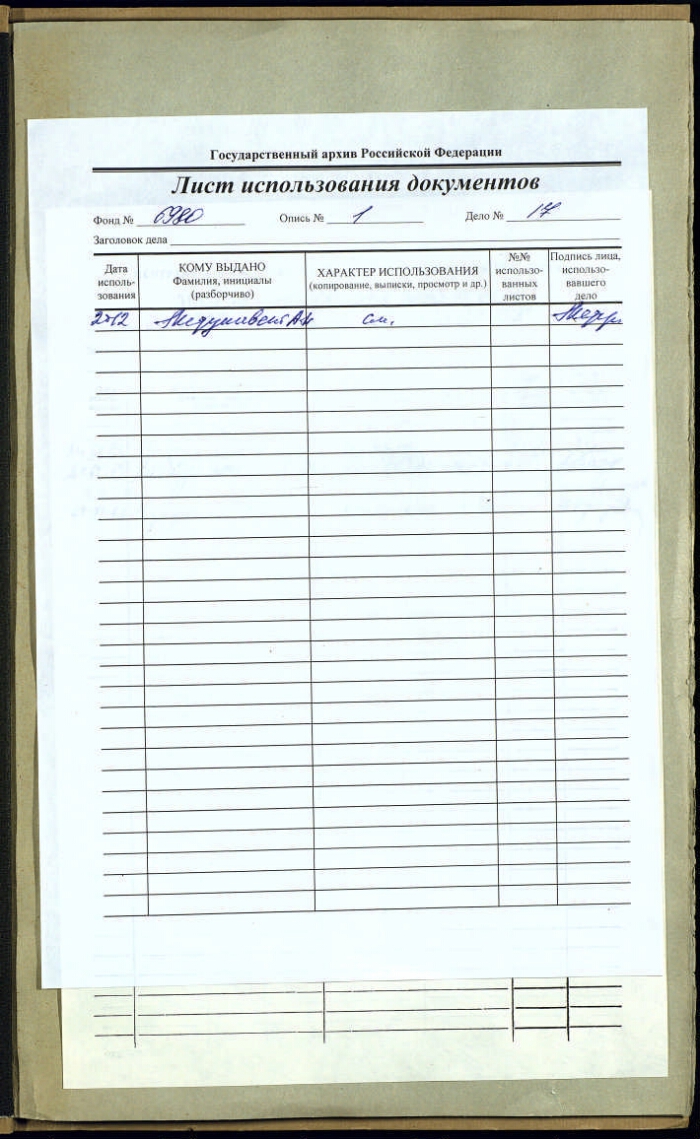 Государственный архив Российской Федерации
Лист использования документов
Фонд № 6980 Опись № 1 Дело № 17
Заголовок дела
Дата исполь-зования
КОМУ ВЫДАНО
Фамилия, инициалы
(разборчиво)
ХАРАКТЕР ИСПОЛЬЗОВАНИЯ
(копирование, выписки, просмотр и др.)
№№
использо-
ванных
листов
Подпись лица,
использо-
вавшего
дело
см.